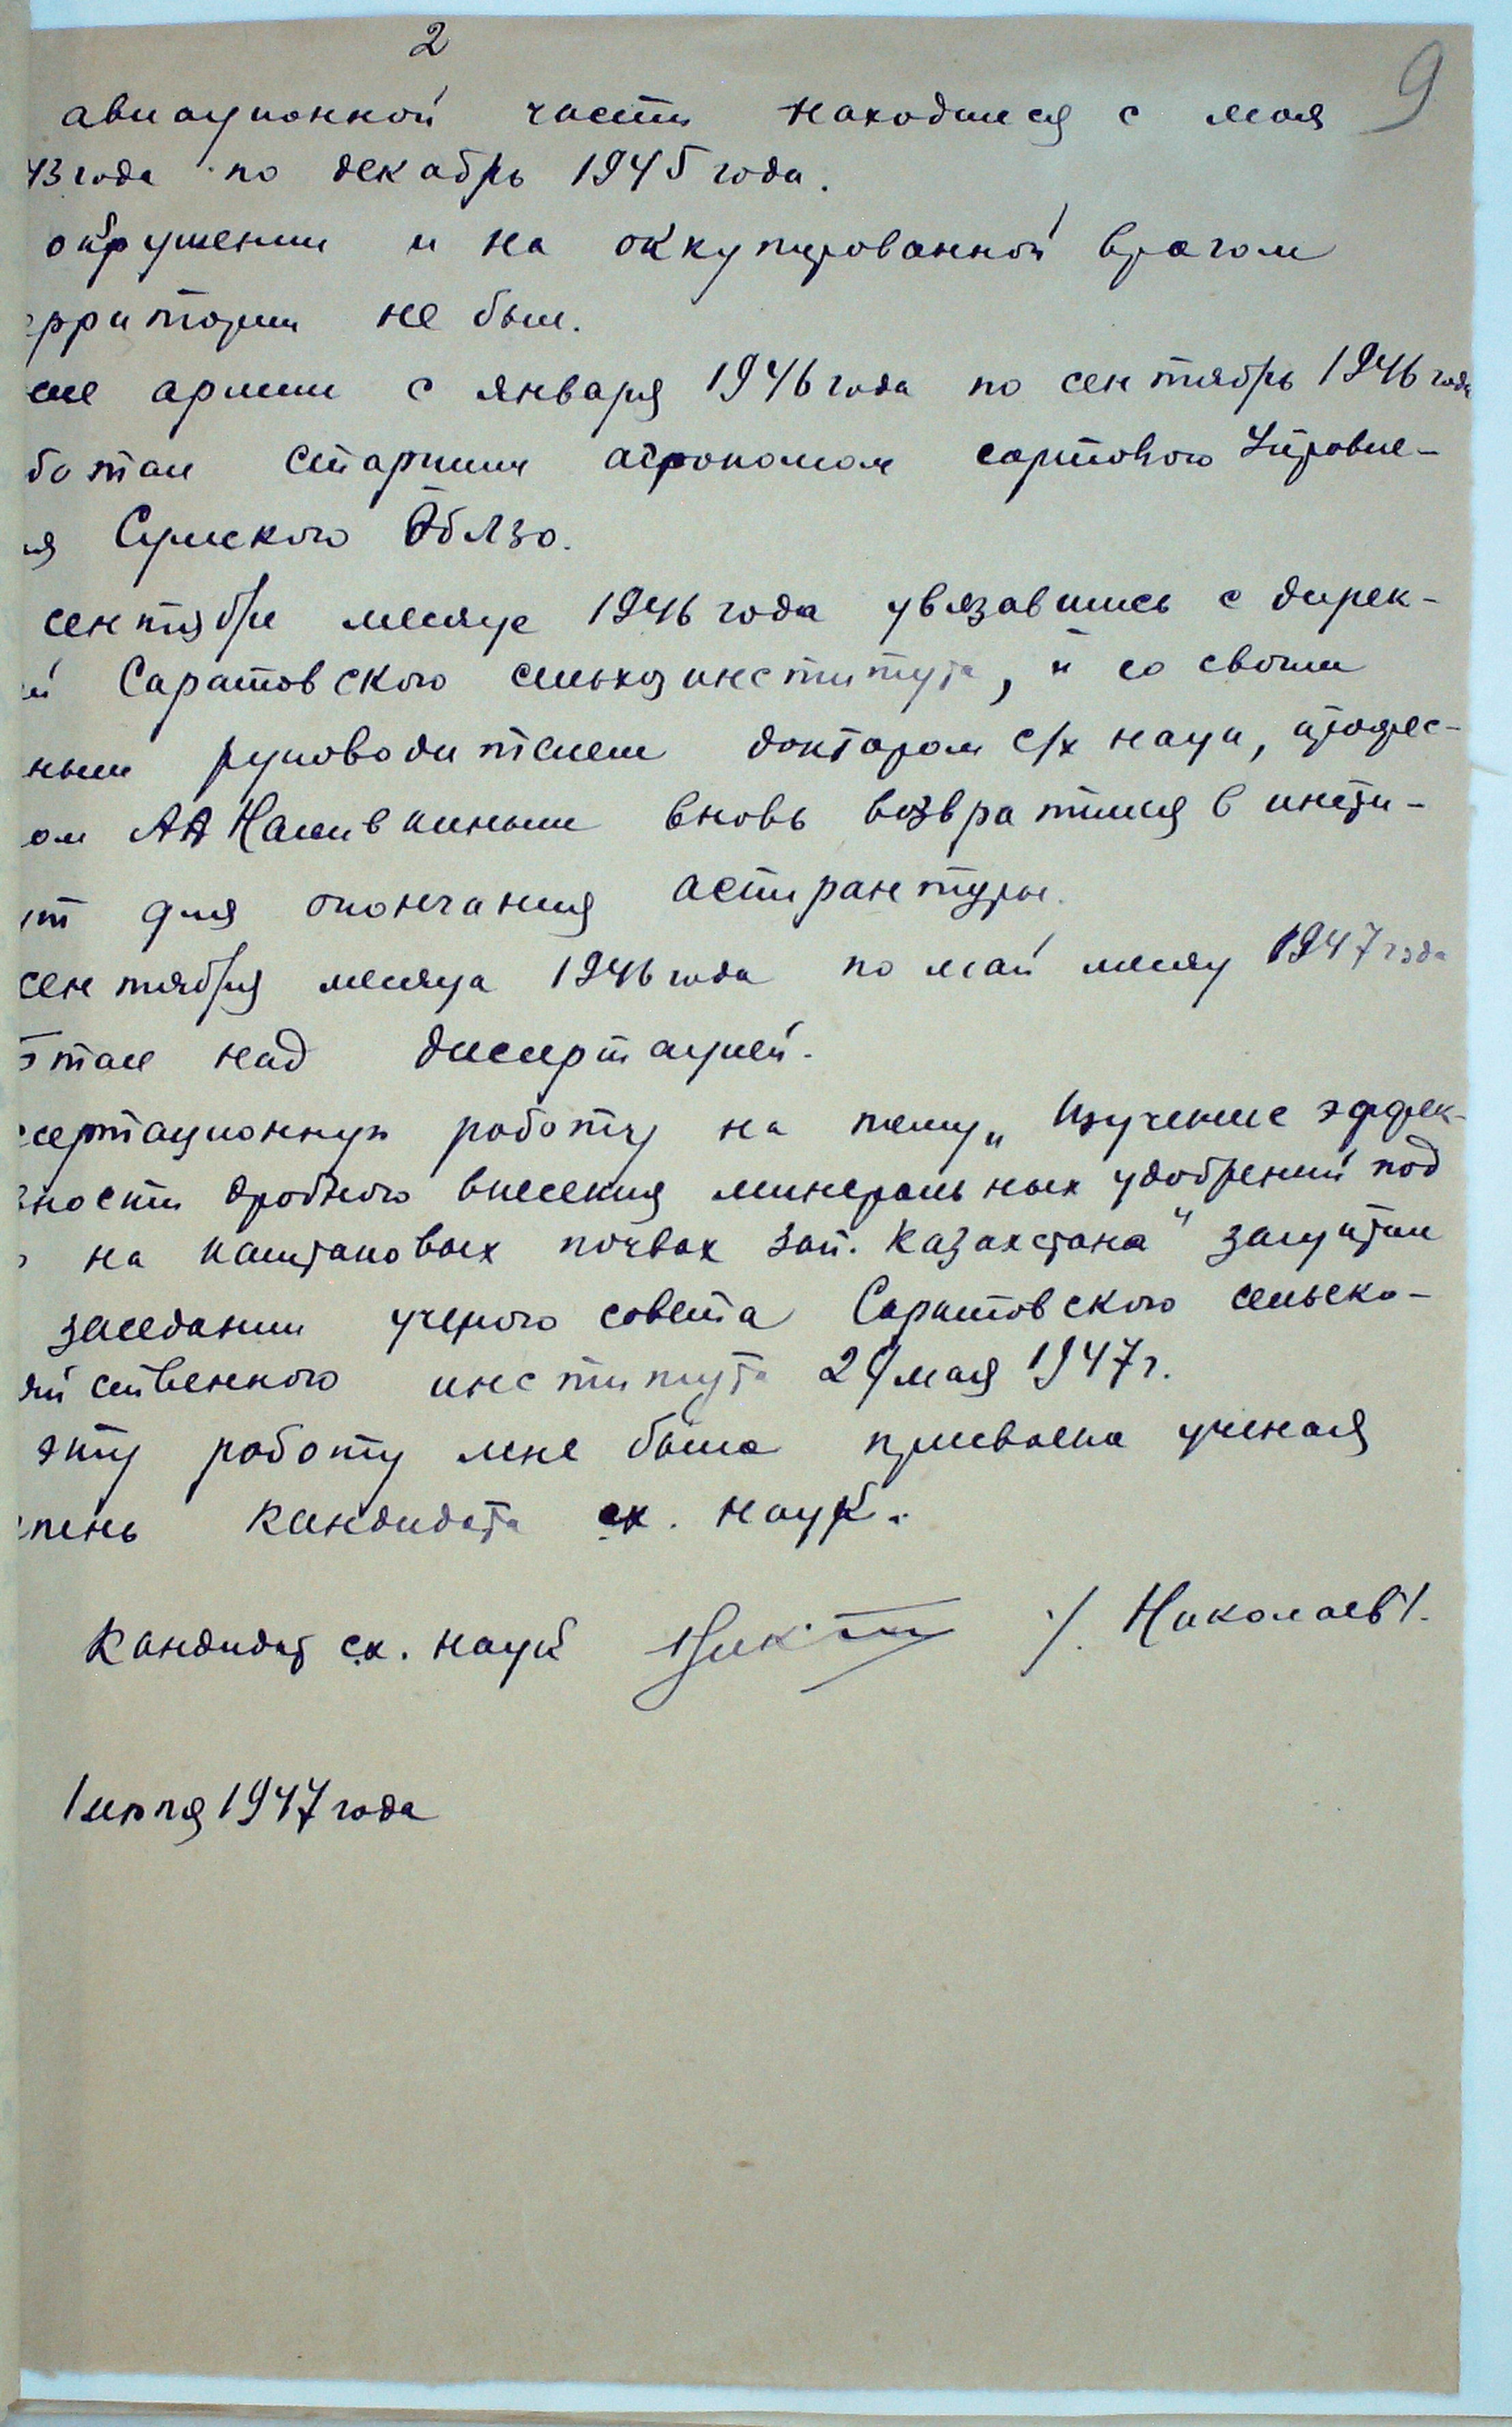 2
9
авиационной части находился с мая
43 года по декабрь 1945 года.
окружении и на оккупированной врагом
ерритории не был.
сле армии с января 1946 года по сентябрь 1946 года
ботал старшим агрономом сортового Управле-
ия Сумского ОблЗо.
сентябре месяце 1946 года увязавшись с дирек-
й Саратовского сельхозинститута, и со своим
ным руководителем доктором с/х наук, профес-
ом АА Наливкиным вновь возвратился в инсти-
ут для окончания аспирантуры.
сентября месяца 1946 года по май месяц 1947 года
отал над дисертацией.
сертационную работу на тему „Изучение эффек-
вности дробного внесения минеральных удобрений под
на каштановых почвах зап. Казахстана" защитил
заседании ученого совета Саратовского сельско-
яйственного института 29 мая 1947 г.
эту работу мне была присвоена ученая
епень кандидата сх. наук.
Кандидат сх. наук /. Николаев /.
1 июля 1947 года